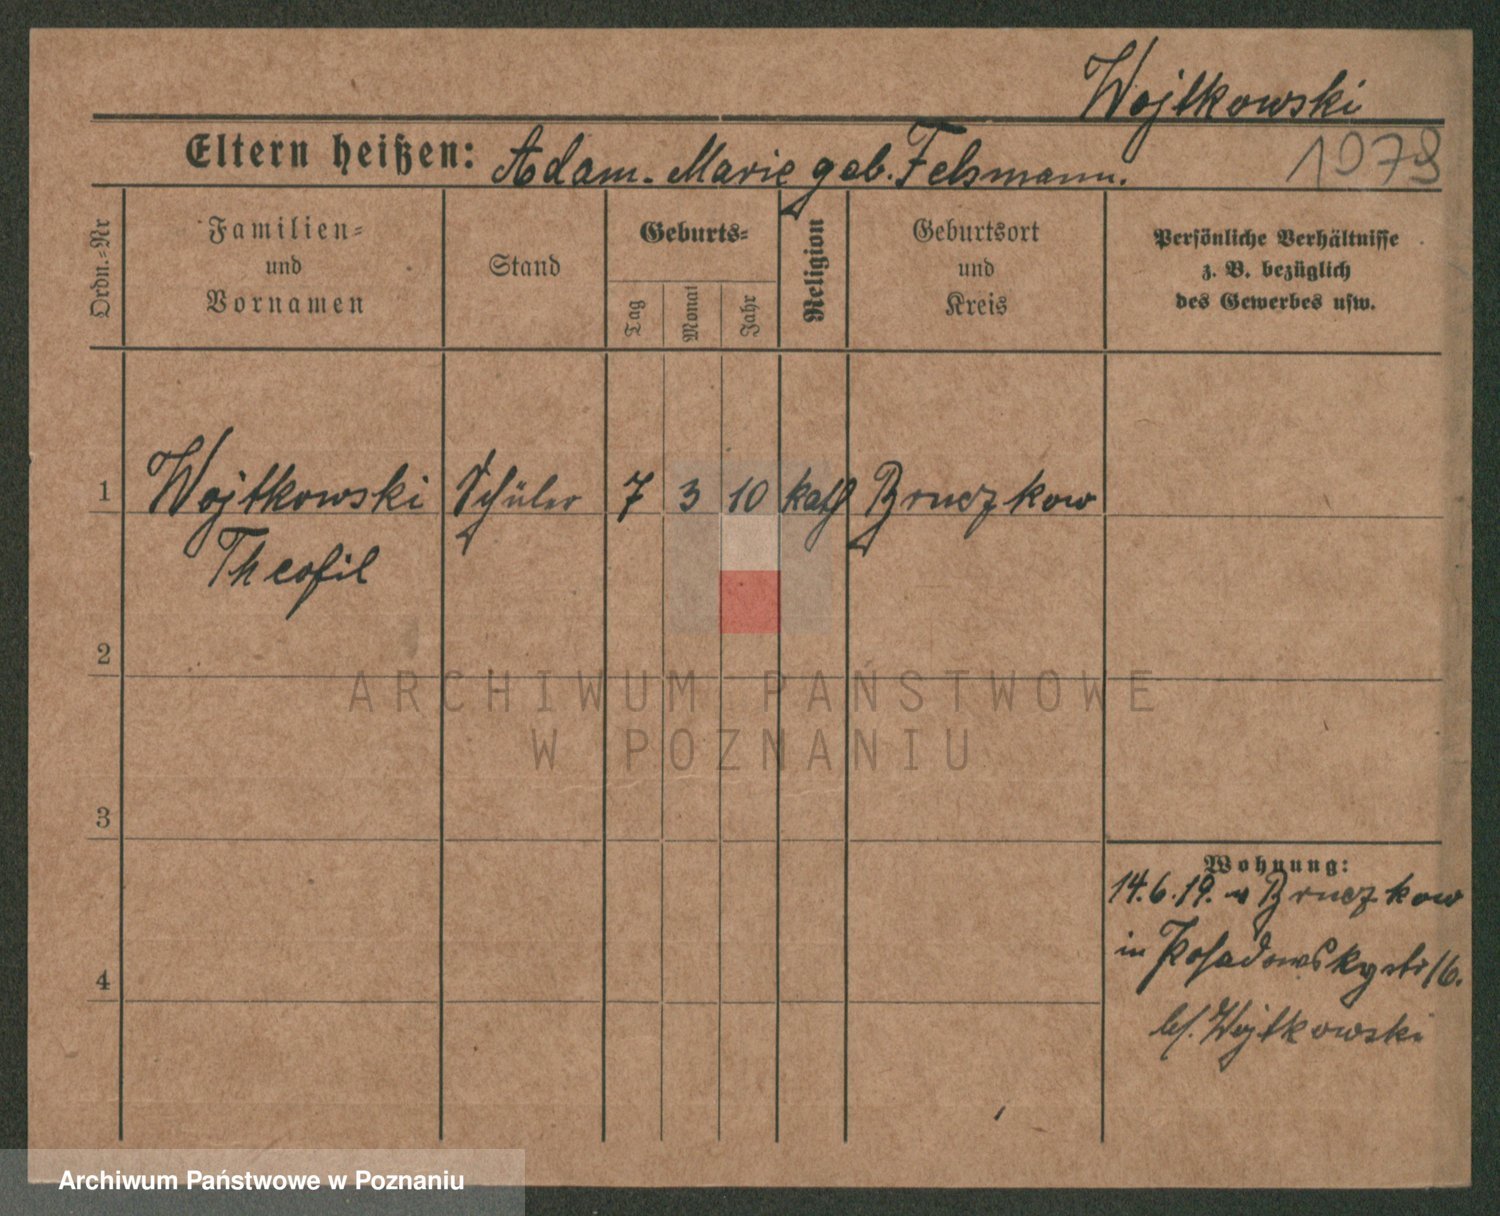 Wojtkowski
Eltern heißen: Adam. Marie geb. Felsmann.
1079
Ordn.-Nr
Familien-
und
Vornamen
Stand
Geburts-
Tag
Monat
Jahr
Religion
Geburtsort
und
Kreis
Persönliche Verhältnisse
z. B. bezüglich
des Gewerbes usw.
1 Wojtkowski Schüler 7 3 10 kath Bruczkow
Theofil
2
ARCHIWUM PAŃSTWOWE
W POZNANIU
3
Wohnung:
14.6.19. v Bruczkow
in Posadowskystr 16.
4
bei Wojtkowski
Archiwum Państwowe w Poznaniu